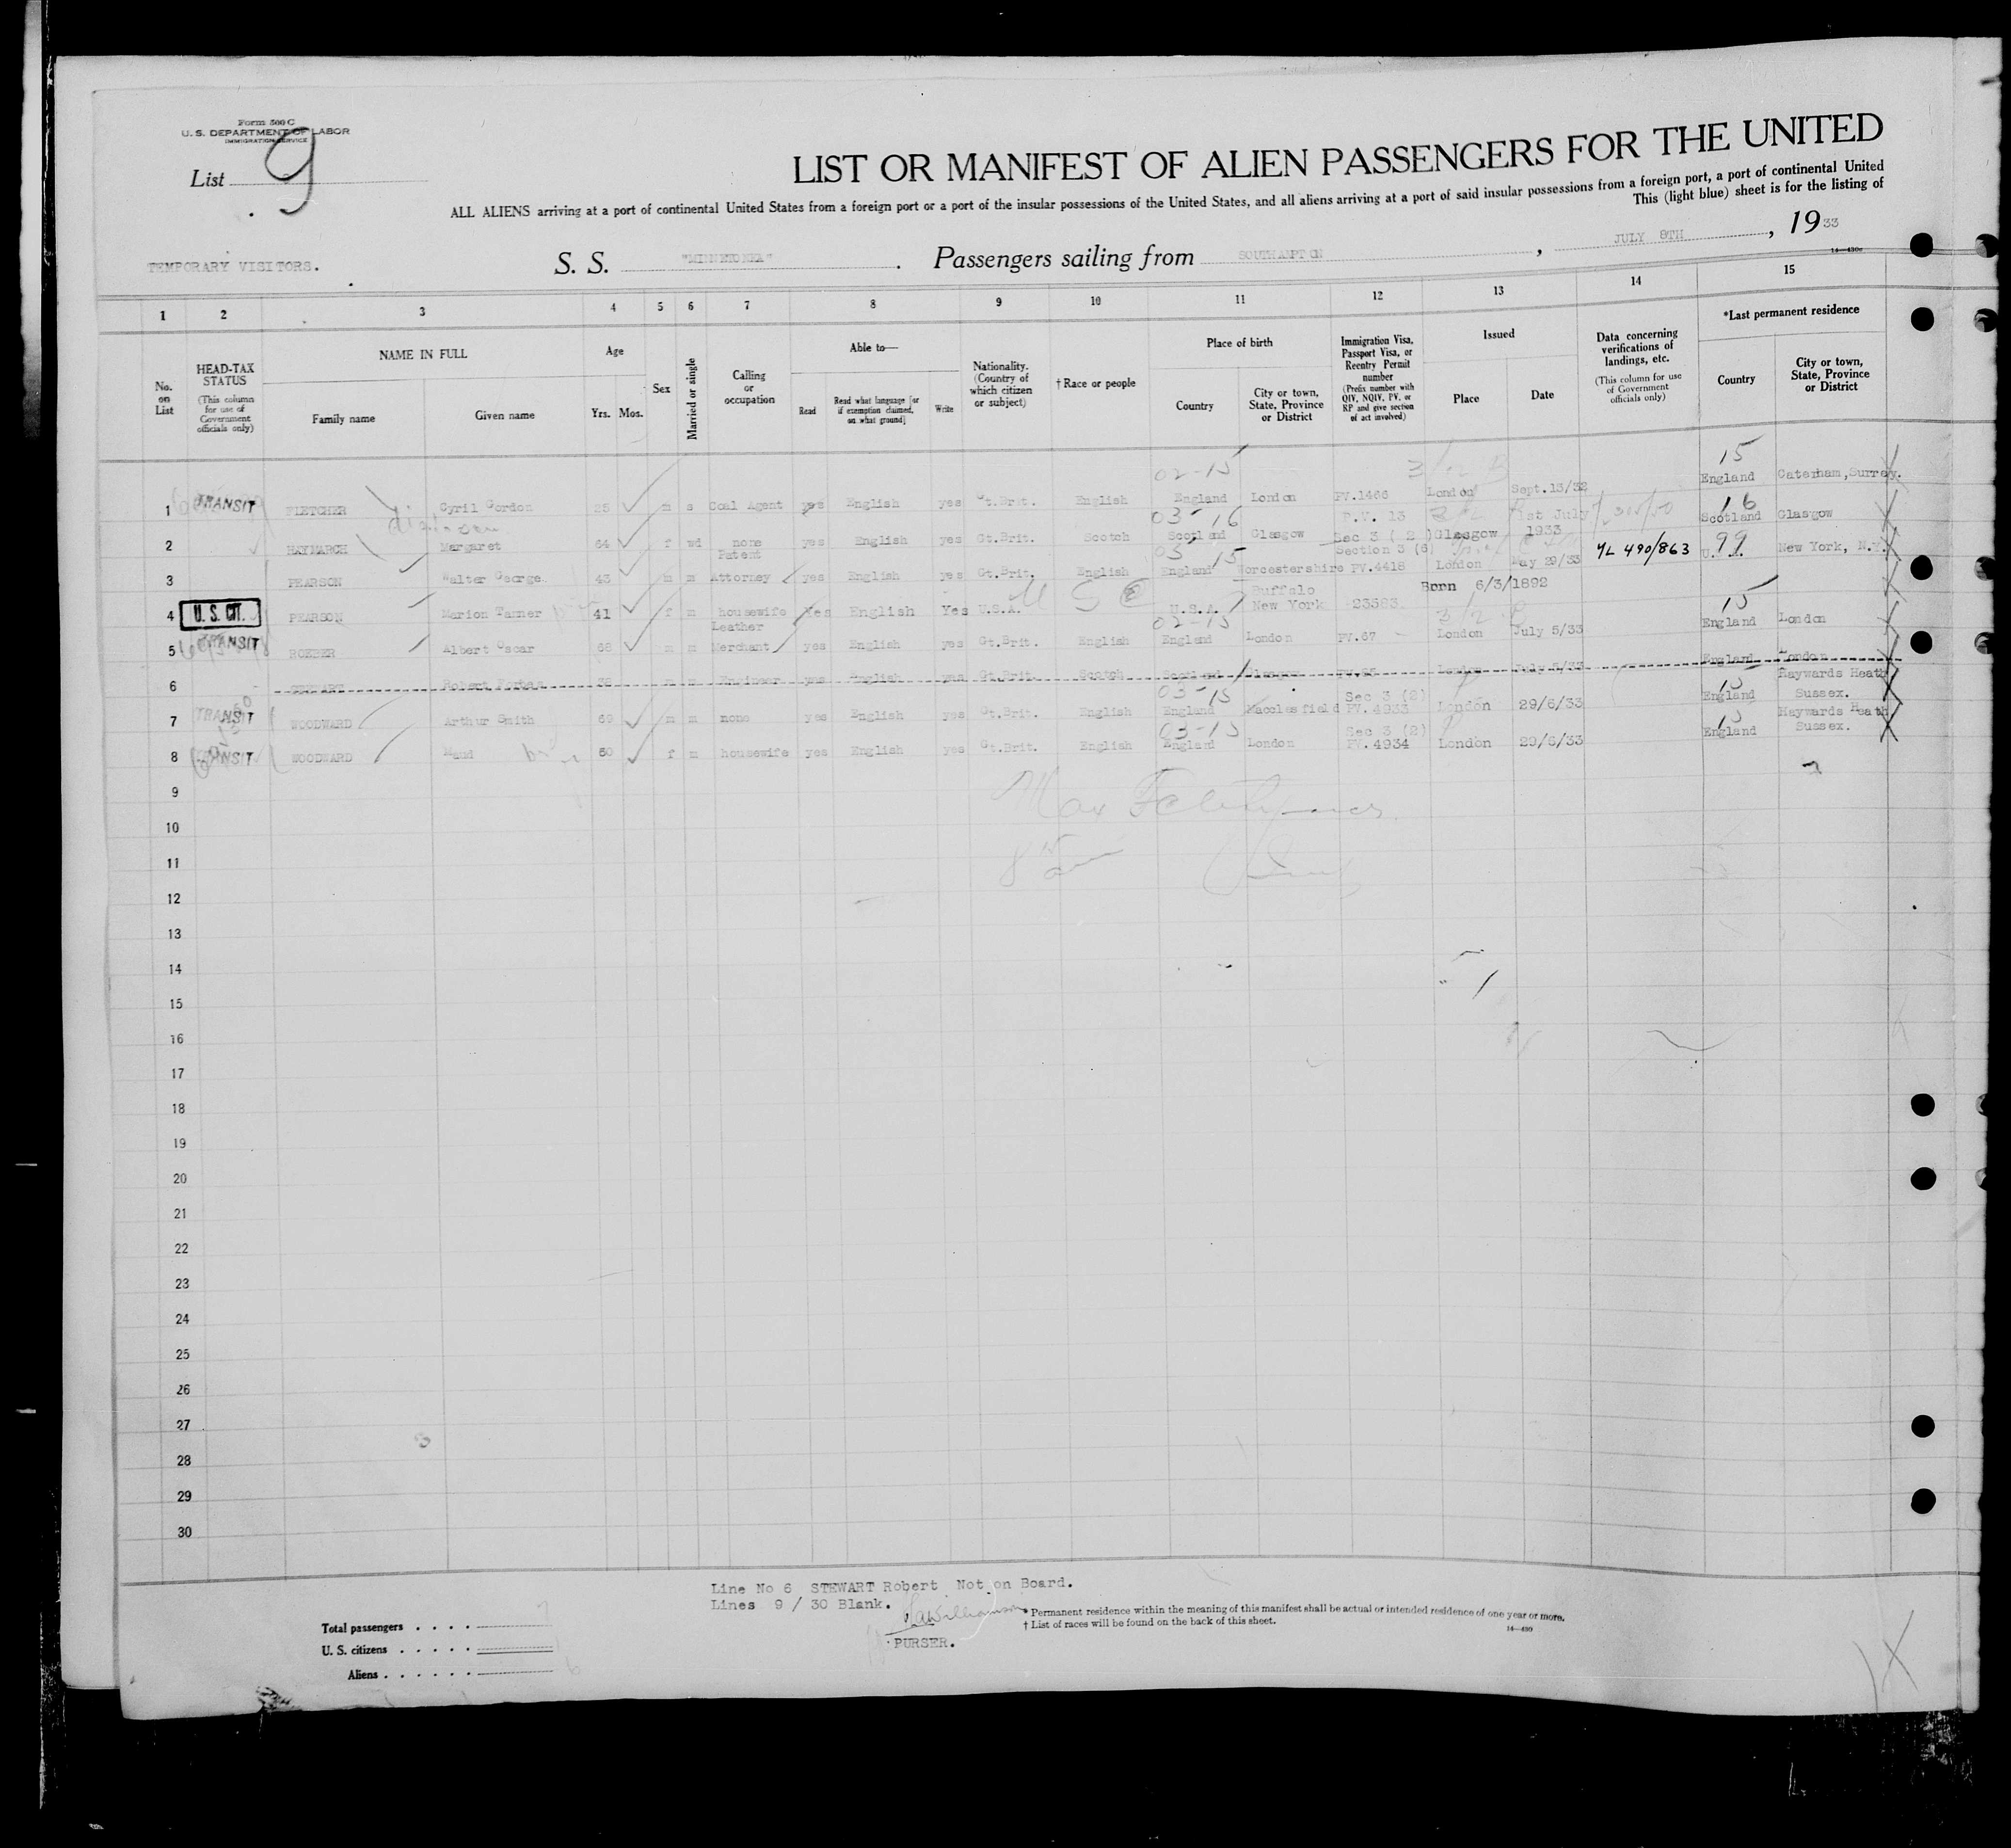 Form 500 C
U. S. DEPARTMENT OF LABOR
IMMIGRATION SERVICE
List 9
LIST OR MANIFEST OF ALIEN PASSENGERS FOR THE UNITED
ALL ALIENS arriving at a port of continental United States from a foreign port or a port of the insular possessions of the United States, and all aliens arriving at a port of said insular possessions from a foreign port, a port of continental United
This (light blue) sheet is for the listing of
TEMPORARY VISITORS.
S. S. "MINNETONKA". Passengers sailing from SOUTHAMPTON, JULY 8TH, 1933
1 2 3 4 5 6 7 8 9 10 11 12 13 14 15
No. on List
HEAD-TAX STATUS (This column for use of Government officials only)
NAME IN FULL
Family name Given name
Age
Yrs. Mos.
Sex
Married or single
Calling or occupation
Able to—
Read Read what language [or if exemption claimed, on what ground] Write
Nationality. (Country of which citizen or subject)
† Race or people
Place of birth
Country City or town, State, Province or District
Immigration Visa, Passport Visa, or Reentry Permit number (Prefix number with QIV, NQIV, PV, or RP and give section of act involved)
Issued
Place Date
Data concerning verifications of landings, etc. (This column for use of Government officials only)
*Last permanent residence
Country City or town, State, Province or District
02-15 15
1 TRANSIT FLETCHER Cyril Gordon 25 m s Coal Agent yes English yes Gt.Brit. English England London PV.1466 London Sept.13/32 England Caterham,Surrey.
03-16 16
2 HAYMARCH Margaret 64 f wd none yes English yes Gt.Brit. Scotch Scotland Glasgow P.V. 13 Sec 3 (2) Glasgow 1st July 1933 Scotland Glasgow
03 15 99
3 PEARSON Walter George. 43 m m Patent Attorney yes English yes Gt.Brit. English England Worcestershire Section 3 (6) PV.4418 London May 29/33 YL 490/863 U.S.A. New York, N.Y.
4 U. S. CIT. PEARSON Marion Tanner 41 f m housewife Yes English Yes U.S.A. U S C U.S.A. Buffalo New York 23583 Born 6/3/1892
02-15 3/2 15
5 TRANSIT ROEBER Albert Oscar 68 m m Leather Merchant yes English yes Gt.Brit. English England London PV.67 London July 5/33 England London
6 STEWART Robert Forbes 38 m m Engineer yes English yes Gt.Brit. Scotch Scotland Glasgow PV.65 London July 5/33 England London
03-15 15
7 TRANSIT WOODWARD Arthur Smith 69 m m none yes English yes Gt.Brit. English England Macclesfield Sec 3 (2) PV. 4933 London 29/6/33 England Haywards Heath Sussex.
03-15 15
8 TRANSIT WOODWARD Maud 60 f m housewife yes English yes Gt.Brit. English England London Sec 3 (2) PV. 4934 London 29/6/33 England Haywards Heath Sussex.
9
10
11
12
13
14
15
16
17
18
19
20
21
22
23
24
25
26
27
28
29
30
Line No 6 STEWART Robert Not on Board.
Lines 9 / 30 Blank.
PURSER.
Total passengers . . . .
U. S. citizens . . . . .
Aliens . . . . . .
* Permanent residence within the meaning of this manifest shall be actual or intended residence of one year or more.
† List of races will be found on the back of this sheet.
14—430